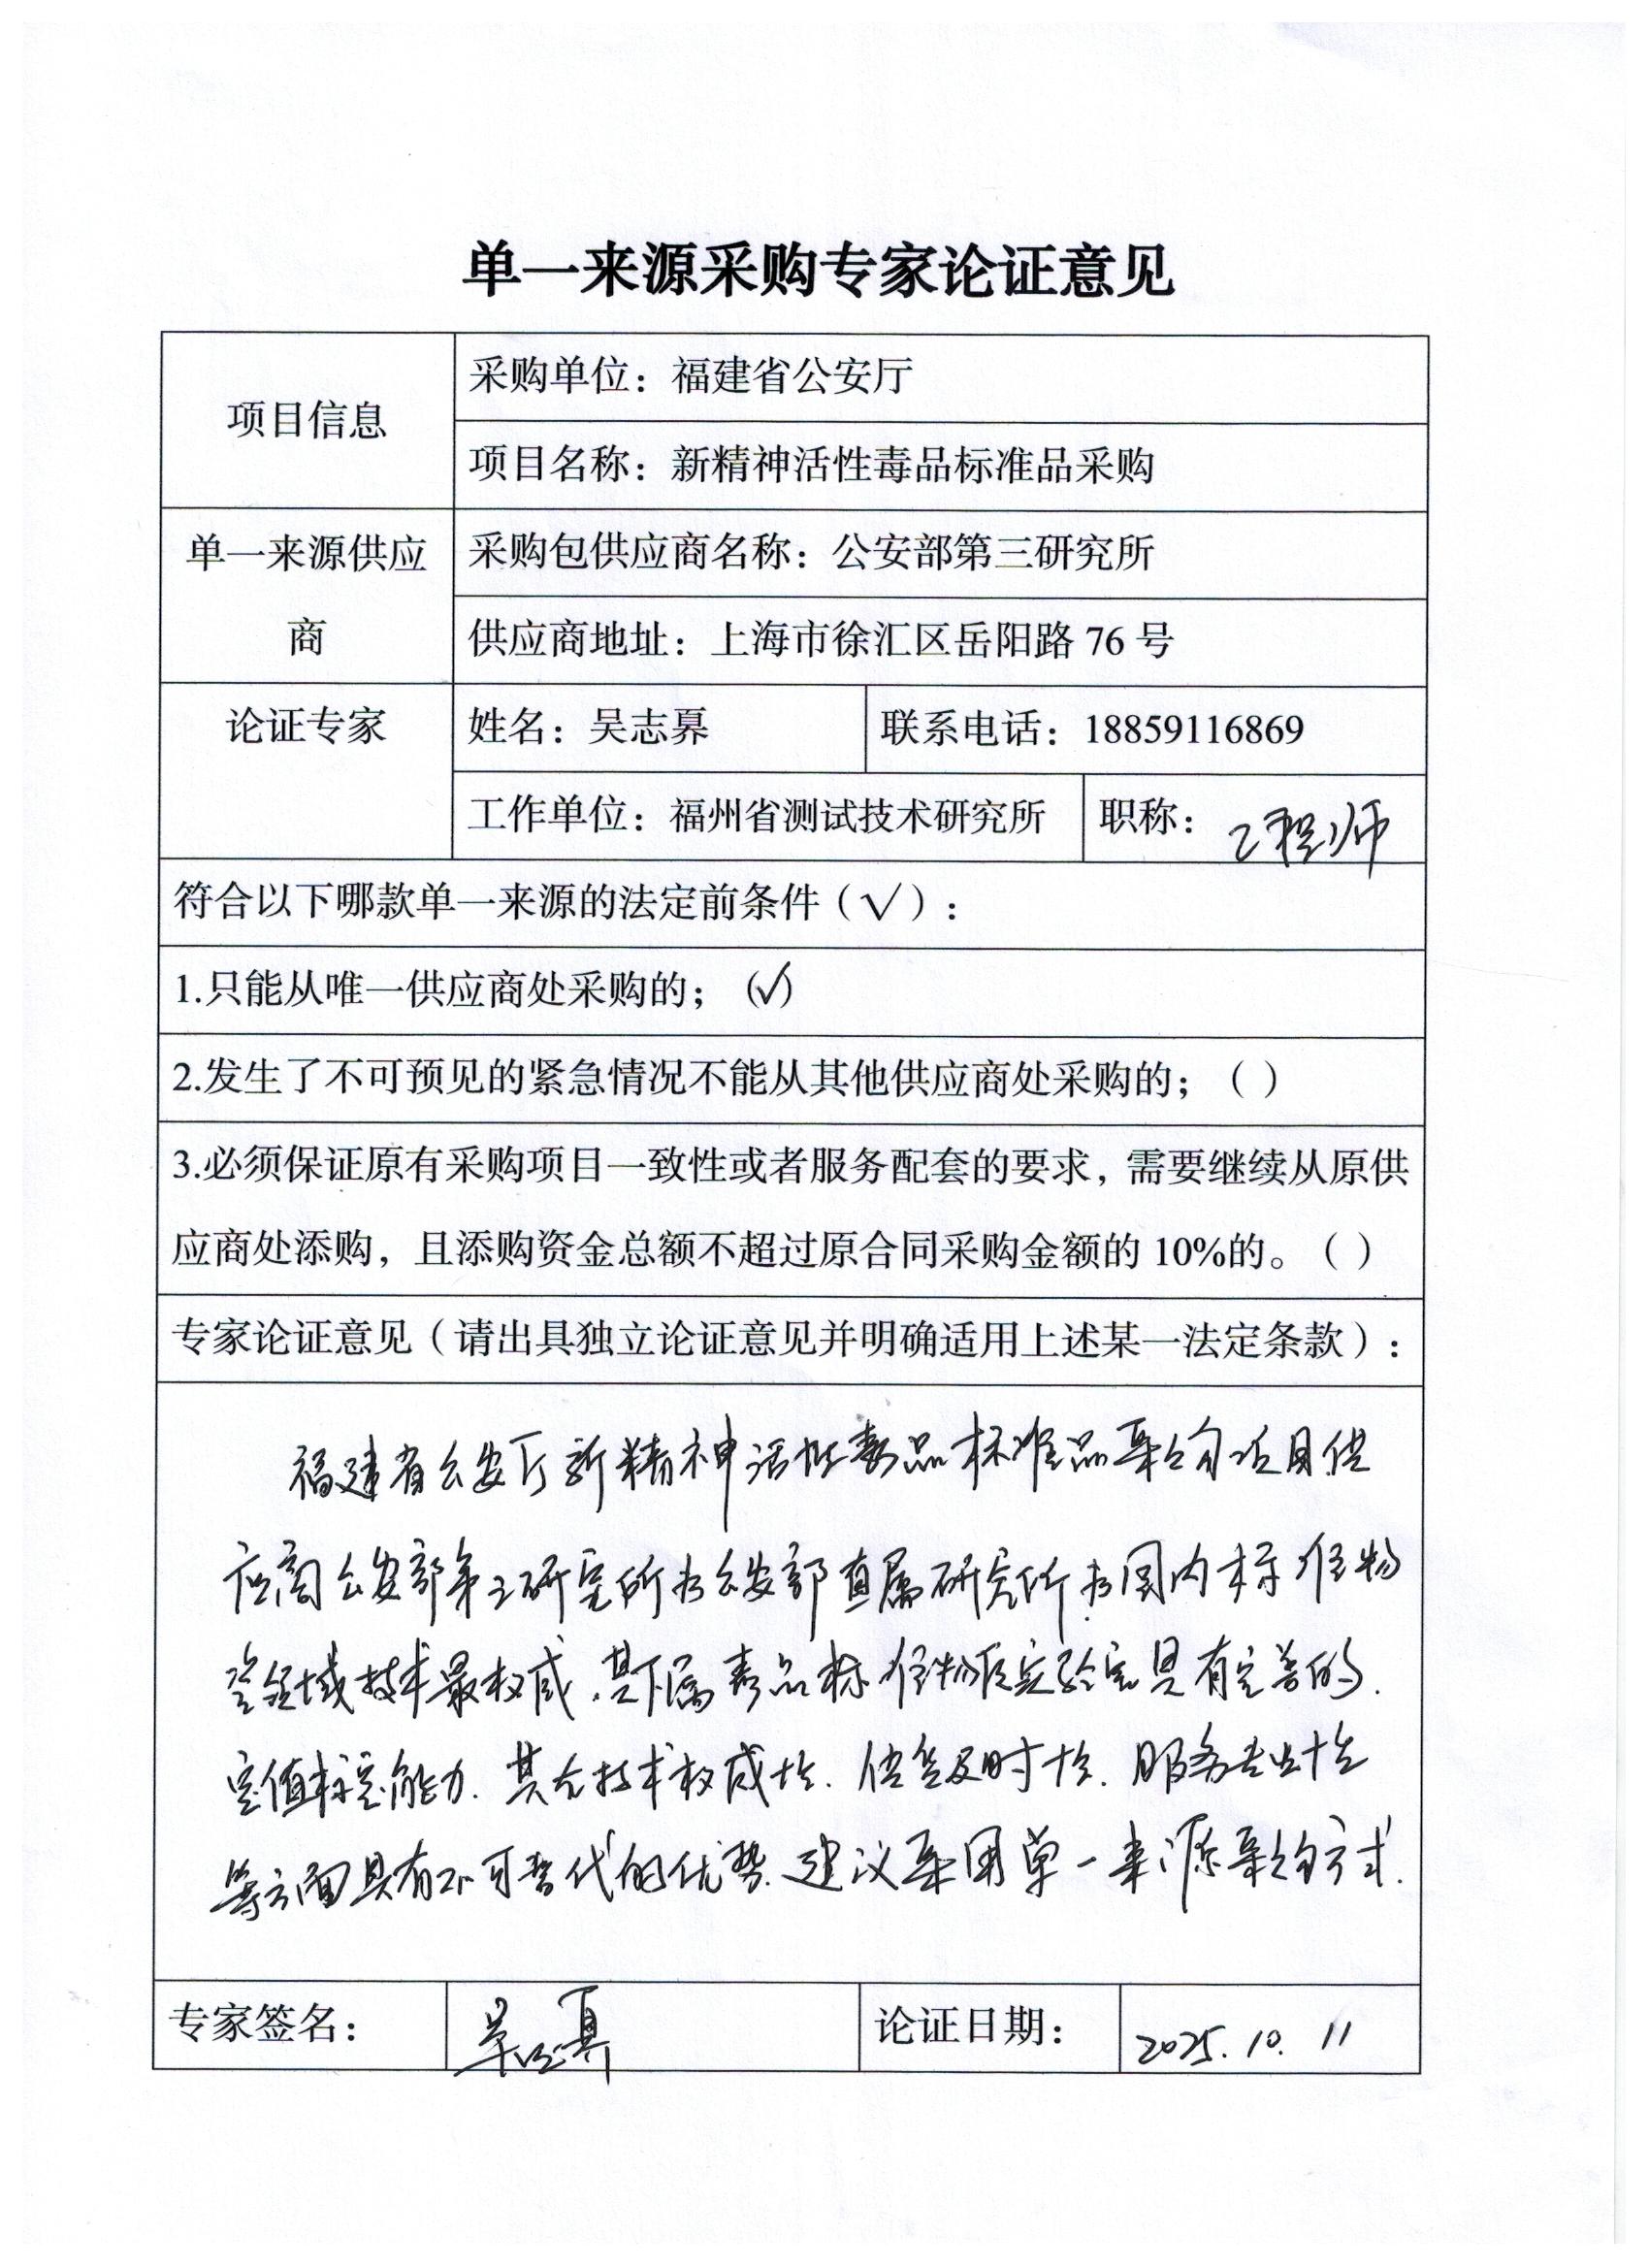 单一来源采购专家论证意见
项目信息
采购单位：福建省公安厅
项目名称：新精神活性毒品标准品采购
单一来源供应
商
采购包供应商名称：公安部第三研究所
供应商地址：上海市徐汇区岳阳路 76 号
论证专家
姓名：吴志奡
联系电话：18859116869
工作单位：福州省测试技术研究所
职称：工程师
符合以下哪款单一来源的法定前条件（√）：
1.只能从唯一供应商处采购的；（√）
2.发生了不可预见的紧急情况不能从其他供应商处采购的；（ ）
3.必须保证原有采购项目一致性或者服务配套的要求，需要继续从原供
应商处添购，且添购资金总额不超过原合同采购金额的 10%的。（ ）
专家论证意见（请出具独立论证意见并明确适用上述某一法定条款）：
福建省公安厅新精神活性毒品标准品采购项目供
应商公安部第三研究所为公安部直属研究所，为国内标准物
质领域技术最权威，其下属毒品标准物质实验室具有完善的
定值标定能力．其在技术权威性．供货及时性．服务专业性
等方面具有不可替代的优势．建议采用单一来源采购方式．
专家签名：
论证日期：
2025.10.11